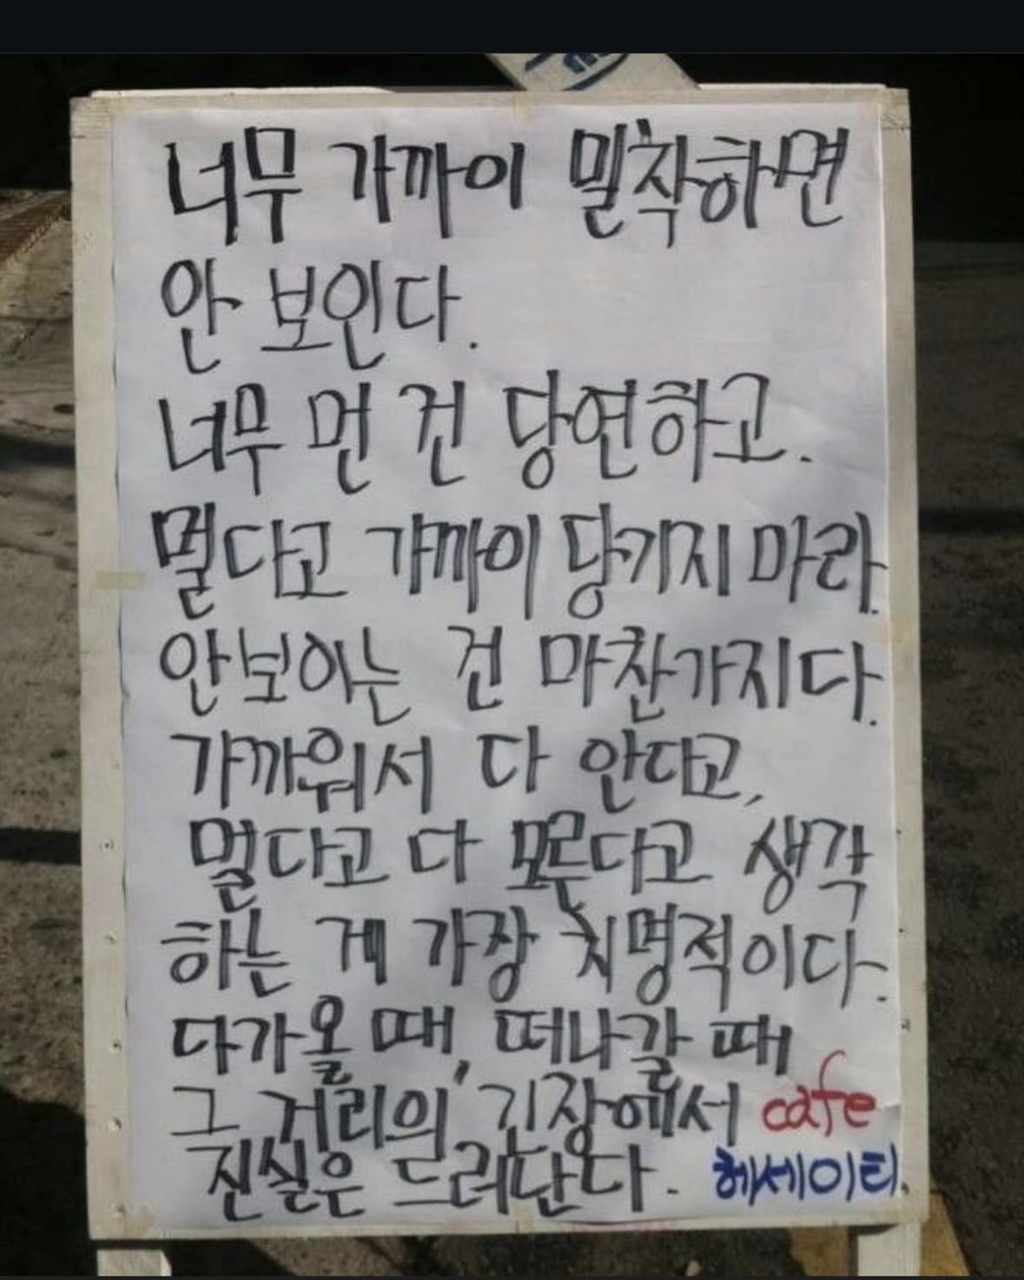 너무 가까이 밀착하면
안 보인다.
너무 먼 건 당연하고.
멀다고 가까이 당기지 마라.
안보이는 건 마찬가지다.
가까워서 다 안다고,
멀다고 다 모른다고 생각
하는 게 가장 치명적이다.
다가올 때, 떠나갈 때
그 거리의 긴장에서 cafe
진실은 드러난다. 헤세이티.